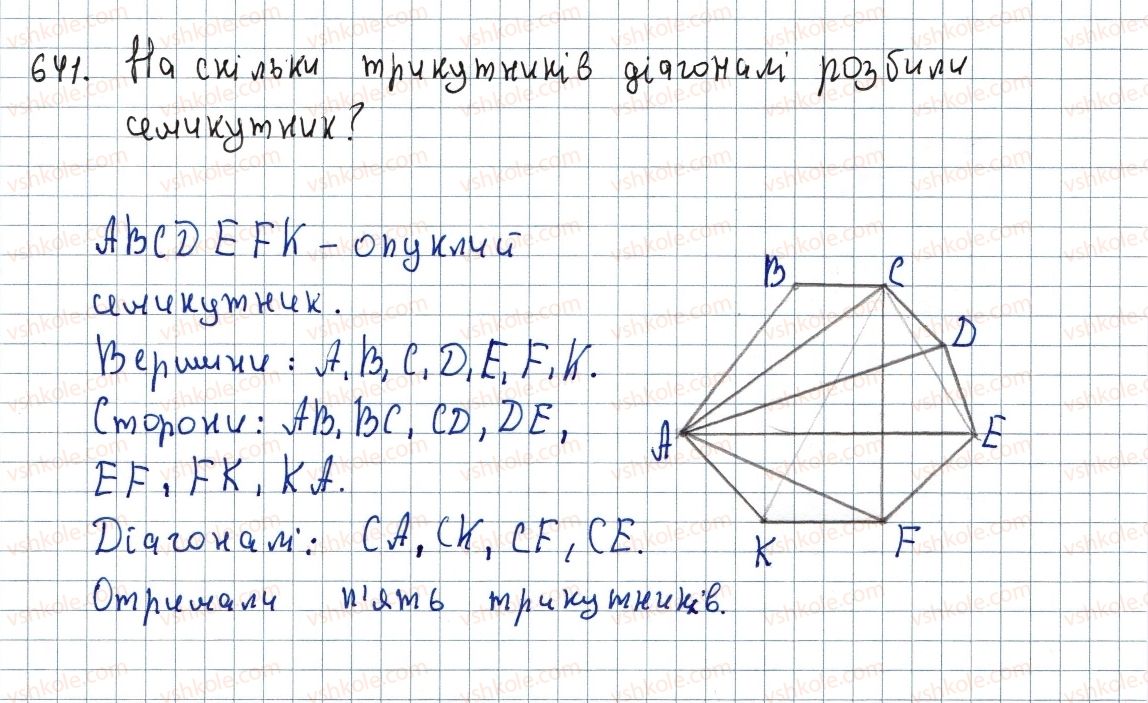 641. На скільки трикутників діагоналі розбили
семикутник?
ABCDEFK – опуклий
семикутник.
Вершини: A, B, C, D, E, F, K.
Сторони: AB, BC, CD, DE,
EF, FK, KA.
Діагоналі: CA, CK, CF, CE.
Отримали п'ять трикутників.
B C
D
A E
K F